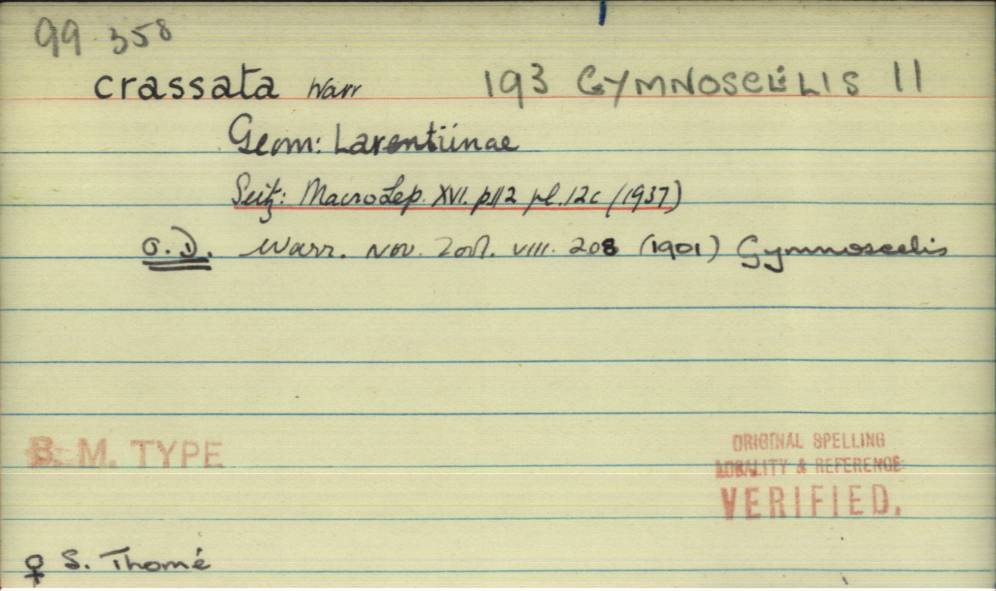 99.358
crassata Warr 193 GYMNOSCELIS 11
Geom: Larentiinae
Seitz: MacroLep. XVI. p112 pl.12c (1937)
O.D. Warr. Nov. Zool. VIII. 208 (1901) Gymnoscelis
B. M. TYPE
ORIGINAL SPELLING
LOCALITY & REFERENCE
VERIFIED.
♀ S. Thomé